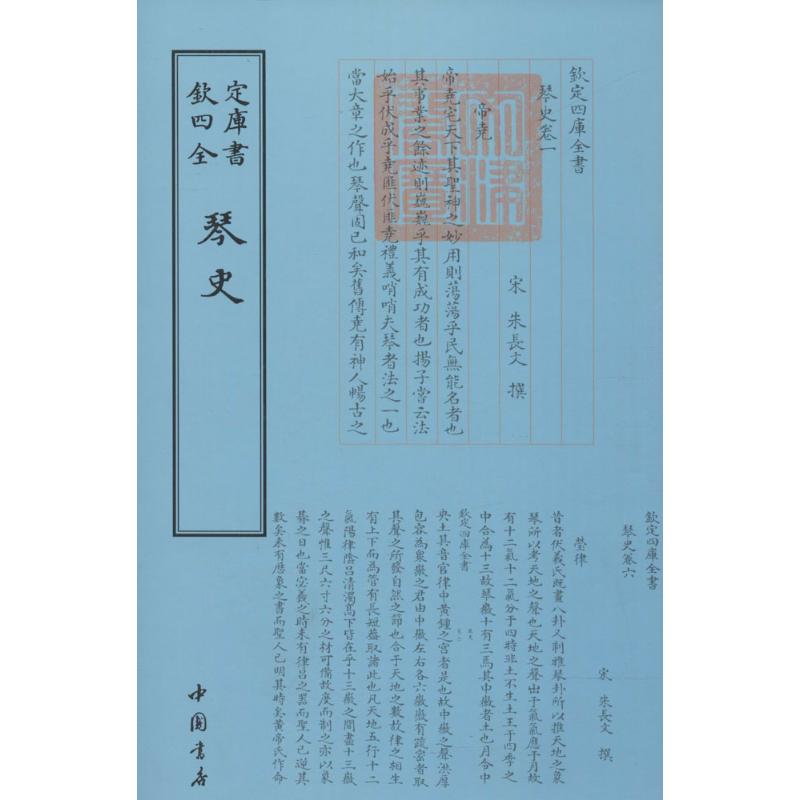 欽定四庫全書
琴史
中國書店
欽定四庫全書
琴史卷一
宋 朱長文 撰
帝堯
帝堯宅天下其聖神之妙用則蕩蕩乎民無能名者也
其事業之餘迹則巍巍乎其有成功者也揚子嘗云法
始乎伏成乎堯匪伏匪堯禮義哨哨夫琴者法之一也
當大章之作也琴聲固已和矣舊傳堯有神人暢古之
欽定四庫全書
琴史卷六
宋 朱長文 撰
瑩律
昔者伏羲氏既畫八卦又制雅琴卦所以推天地之象
琴所以考天地之聲也天地之聲出于氣氣應于月故
有十二氣十二氣分于四時非土不生土王于四季之
中合為十三故琴徽十有三焉其中徽者土也月令中
欽定四庫全書
央土其音宮律中黃鍾之宮者是也故中徽之聲洪厚
包容為衆徽之君由中徽左右各六徽徽有疏密者取
其聲之所發自然之節也合于天地之數故律之相生
有上下而為管有長短蓋取諸此也凡天地五行十二
氣陽律陰呂清濁高下皆在乎十三徽之間盡十三徽
之聲惟三尺六寸六分之材可備故度而制之亦以象
朞之日也當宓羲之時未有律呂之器而聖人已逆其
數矣未有厯象之書而聖人已明其時矣黃帝氏作命